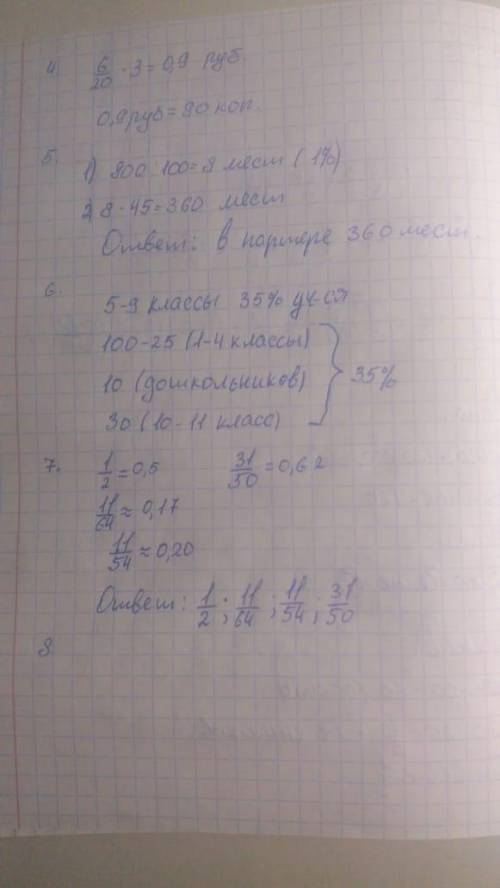 4. 6/20 · 3 = 0,9 руб.
0,9 руб = 90 коп.
5. 1) 800 : 100 = 8 мест (1%)
2) 8 · 45 = 360 мест
Ответ: в партере 360 мест.
6. 5-9 классы 35% уч-ся
100-25 (1-4 классы)
10 (дошкольников) } 35%
30 (10-11 класс)
7. 1/2 = 0,5 31/50 = 0,62
11/64 ≈ 0,17
11/54 ≈ 0,20
Ответ: 1/2 ; 11/64 ; 11/54 ; 31/50
8.